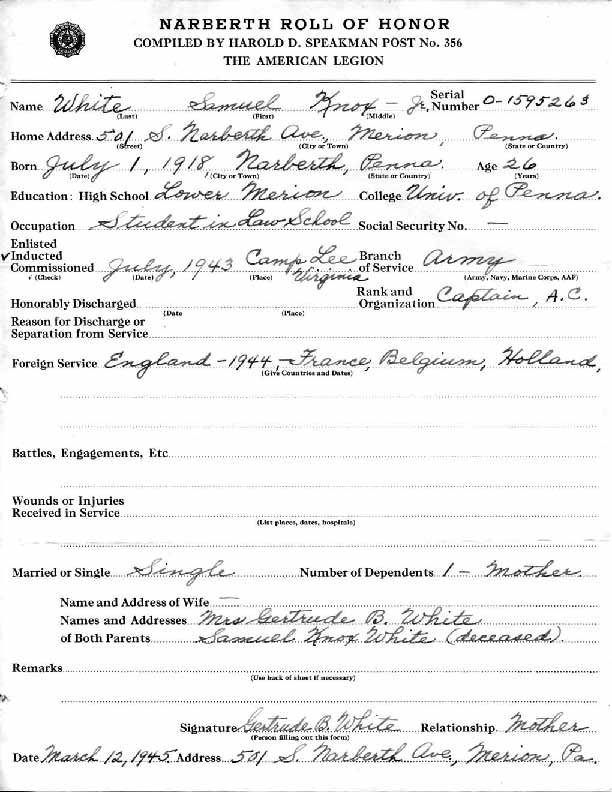 NARBERTH ROLL OF HONOR
COMPILED BY HAROLD D. SPEAKMAN POST No. 356
THE AMERICAN LEGION
Name White Samuel Knox - Jr. Serial Number 0-1595263
(Last) (First) (Middle)
Home Address 501 S. Narberth Ave., Merion, Penna.
(Street) (City or Town) (State or Country)
Born July 1, 1918 Narberth, Penna. Age 26
(Date) (City or Town) (State or Country) (Years)
Education: High School Lower Merion College Univ. of Penna.
Occupation Student in Law School Social Security No. —
Enlisted
✓ Inducted
Commissioned July, 1943 Camp Lee Virginia Branch of Service Army
√ (Check) (Date) (Place) (Army, Navy, Marine Corps, AAF)
Honorably Discharged Rank and Organization Captain, A.C.
(Date (Place)
Reason for Discharge or
Separation from Service
Foreign Service England - 1944, - France, Belgium, Holland,
(Give Countries and Dates)
Battles, Engagements, Etc
Wounds or Injuries
Received in Service
(List places, dates, hospitals)
Married or Single Single Number of Dependents 1 - Mother
Name and Address of Wife —
Names and Addresses Mrs Gertrude B. White
of Both Parents Samuel Knox White (deceased)
Remarks
(Use back of sheet if necessary)
Signature Gertrude B. White Relationship Mother
(Person filling out this form)
Date March 12, 1945 Address 501 S. Narberth Ave., Merion, Pa.